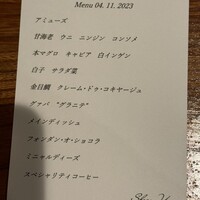 Menu 04. 11. 2023
アミューズ
甘海老　ウニ　ニンジン　コンソメ
本マグロ　キャビア　白インゲン
白子　サラダ菜
金目鯛　クレーム・ドゥ・コキヤージュ
グァバ　"グラニテ"
メインディッシュ
フォンダン・オ・ショコラ
ミニャルディーズ
スペシャリティコーヒー